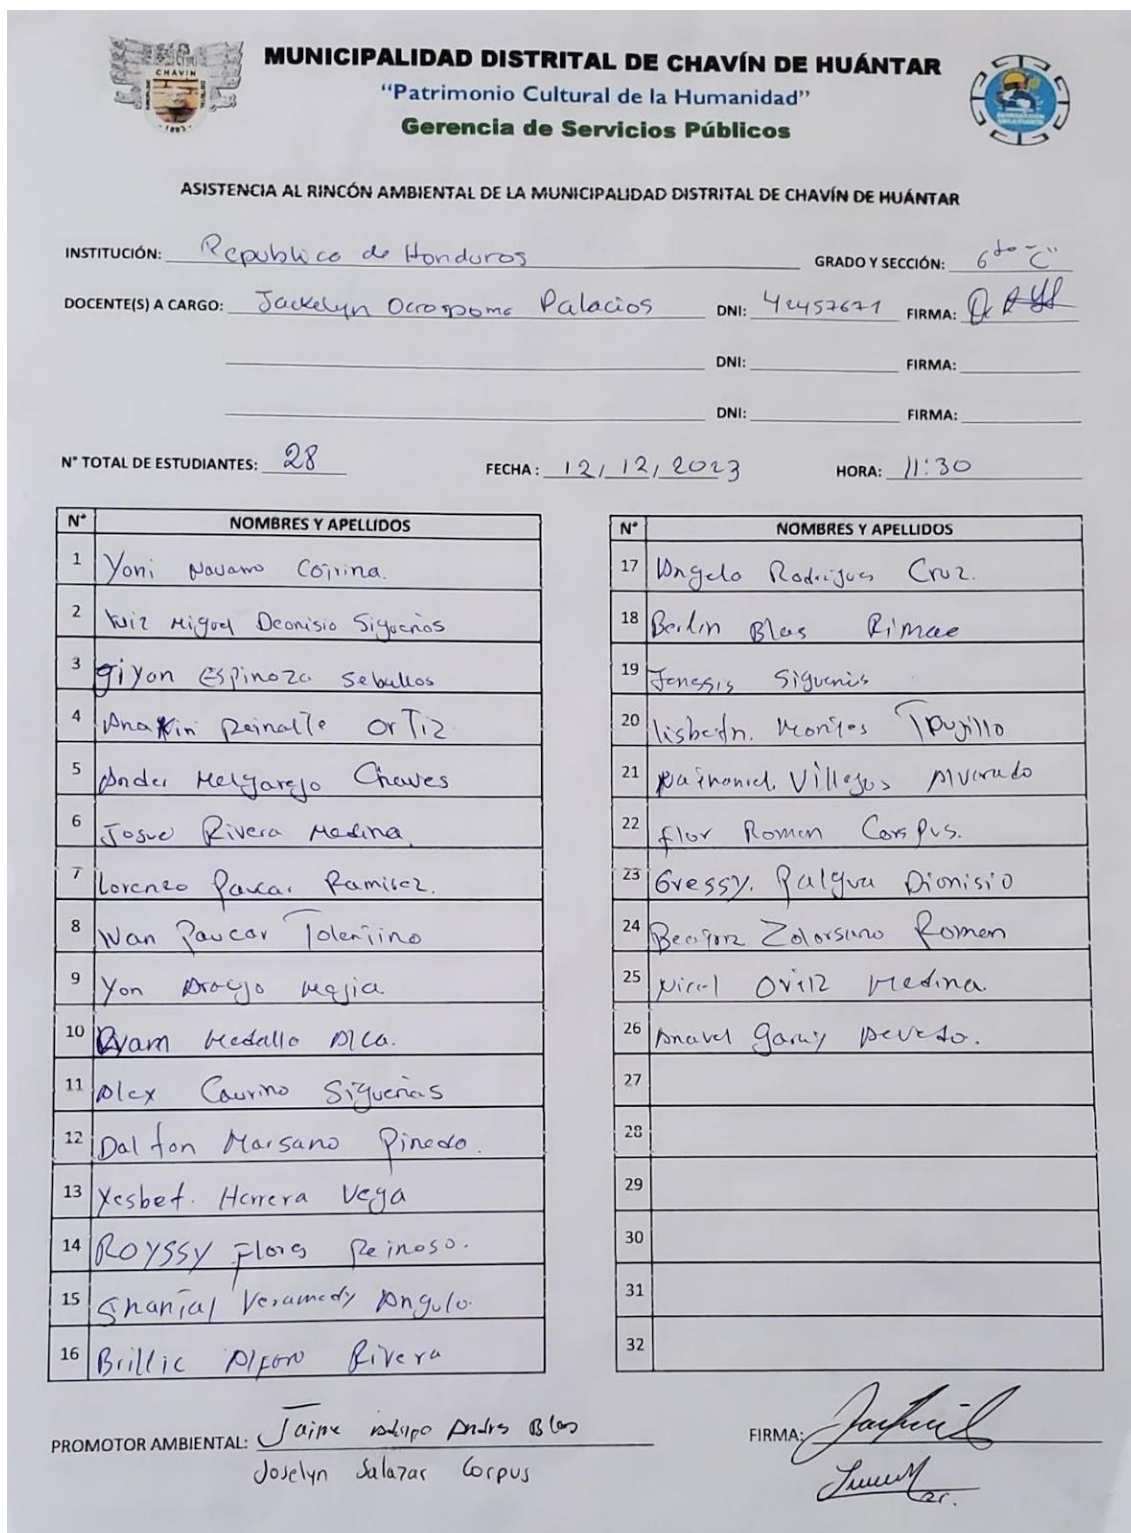 CHAVIN
1983
MUNICIPALIDAD DISTRITAL DE CHAVÍN DE HUÁNTAR
“Patrimonio Cultural de la Humanidad”
Gerencia de Servicios Públicos
ASISTENCIA AL RINCÓN AMBIENTAL DE LA MUNICIPALIDAD DISTRITAL DE CHAVÍN DE HUÁNTAR
INSTITUCIÓN: Republica de Honduras GRADO Y SECCIÓN: 6to "C"
DOCENTE(S) A CARGO: Jackelyn Ocrospoma Palacios DNI: 42457671 FIRMA:
DNI: FIRMA:
DNI: FIRMA:
N° TOTAL DE ESTUDIANTES: 28 FECHA: 12/12/2023 HORA: 11:30
N° NOMBRES Y APELLIDOS
1 Yoni Navarro
2 Luiz Miguel Deonisio Sigueñas
3 Giyon Espinoza Seballos
4 Anakin Reinalte Ortiz
5 Ander Melgarejo Chaves
6 Josue Rivera Medina
7 Lorenzo Paucar Ramirez.
8 Ivan Paucar Tolentino
9 Yon Araujo Mejia
10 Medallo
11 Alex Caurino Sigueñas
12 Dalton Marsano Pinedo.
13 Yesbet. Herrera Vega
14 ROYSSY Flores Reinoso.
15 Shantal Angulo.
16 Brillic Alfaro Rivera
N° NOMBRES Y APELLIDOS
17 Angelo Rodrigues Cruz.
18 Berlin Blas Rimac
19 Jenessis Sigueñas
20 lisbeth. Montes Trujillo
21 Nathaniel Villegas Alvarado
22 flor Roman Corpus.
23 Gressy. Palgua Dionisio
24 Zolorsano Roman
25 Nicol Ortiz Medina.
26 Anavel Garay
27
28
29
30
31
32
PROMOTOR AMBIENTAL: Jaime Andres Blas FIRMA:
Joselyn Salazar Corpus